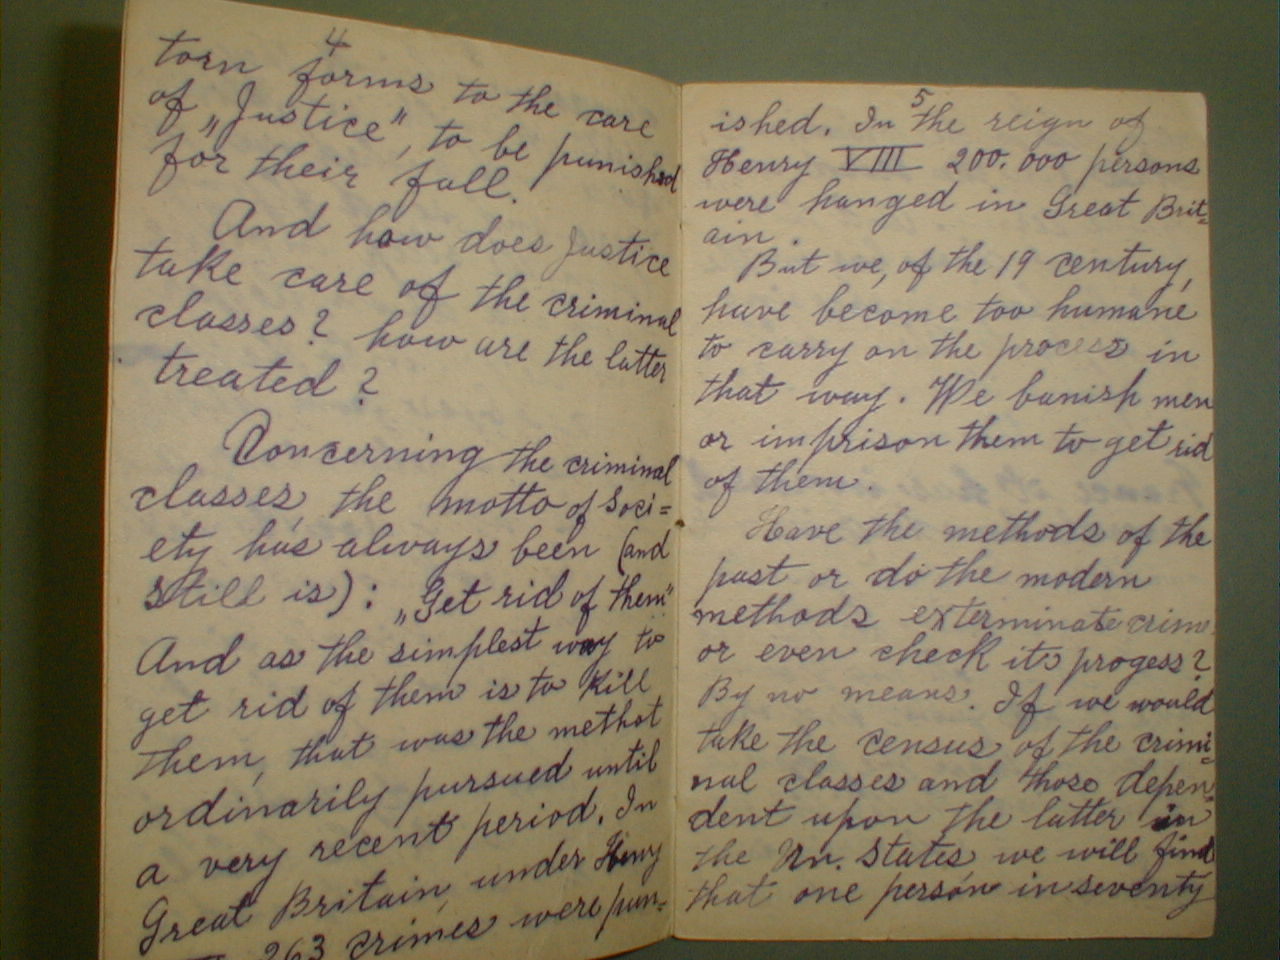 4
torn forms to the care
of „Justice", to be punished
for their fall.
And how does Justice
take care of the criminal
classes? how are the latter
treated?
Concerning the criminal
classes, the motto of Soci=
ety has always been (and
still is): „Get rid of them"
And as the simplest way to
get rid of them is to kill
them, that was the methot
ordinarily pursued until
a very recent period. In
Great Britain, under Henry
263 crimes were pun=
5
ished. In the reign of
Henry VIII 200.000 persons
were hanged in Great Brit=
ain.
But we, of the 19 century,
have become too humane
to carry on the process in
that way. We banish men
or imprison them to get rid
of them.
Have the methods of the
past or do the modern
methods exterminate crime
or even check its progess?
By no means. If we would
take the census of the crimi=
nal classes and those depen=
dent upon the latter in
the Un. States we will find
that one person in seventy